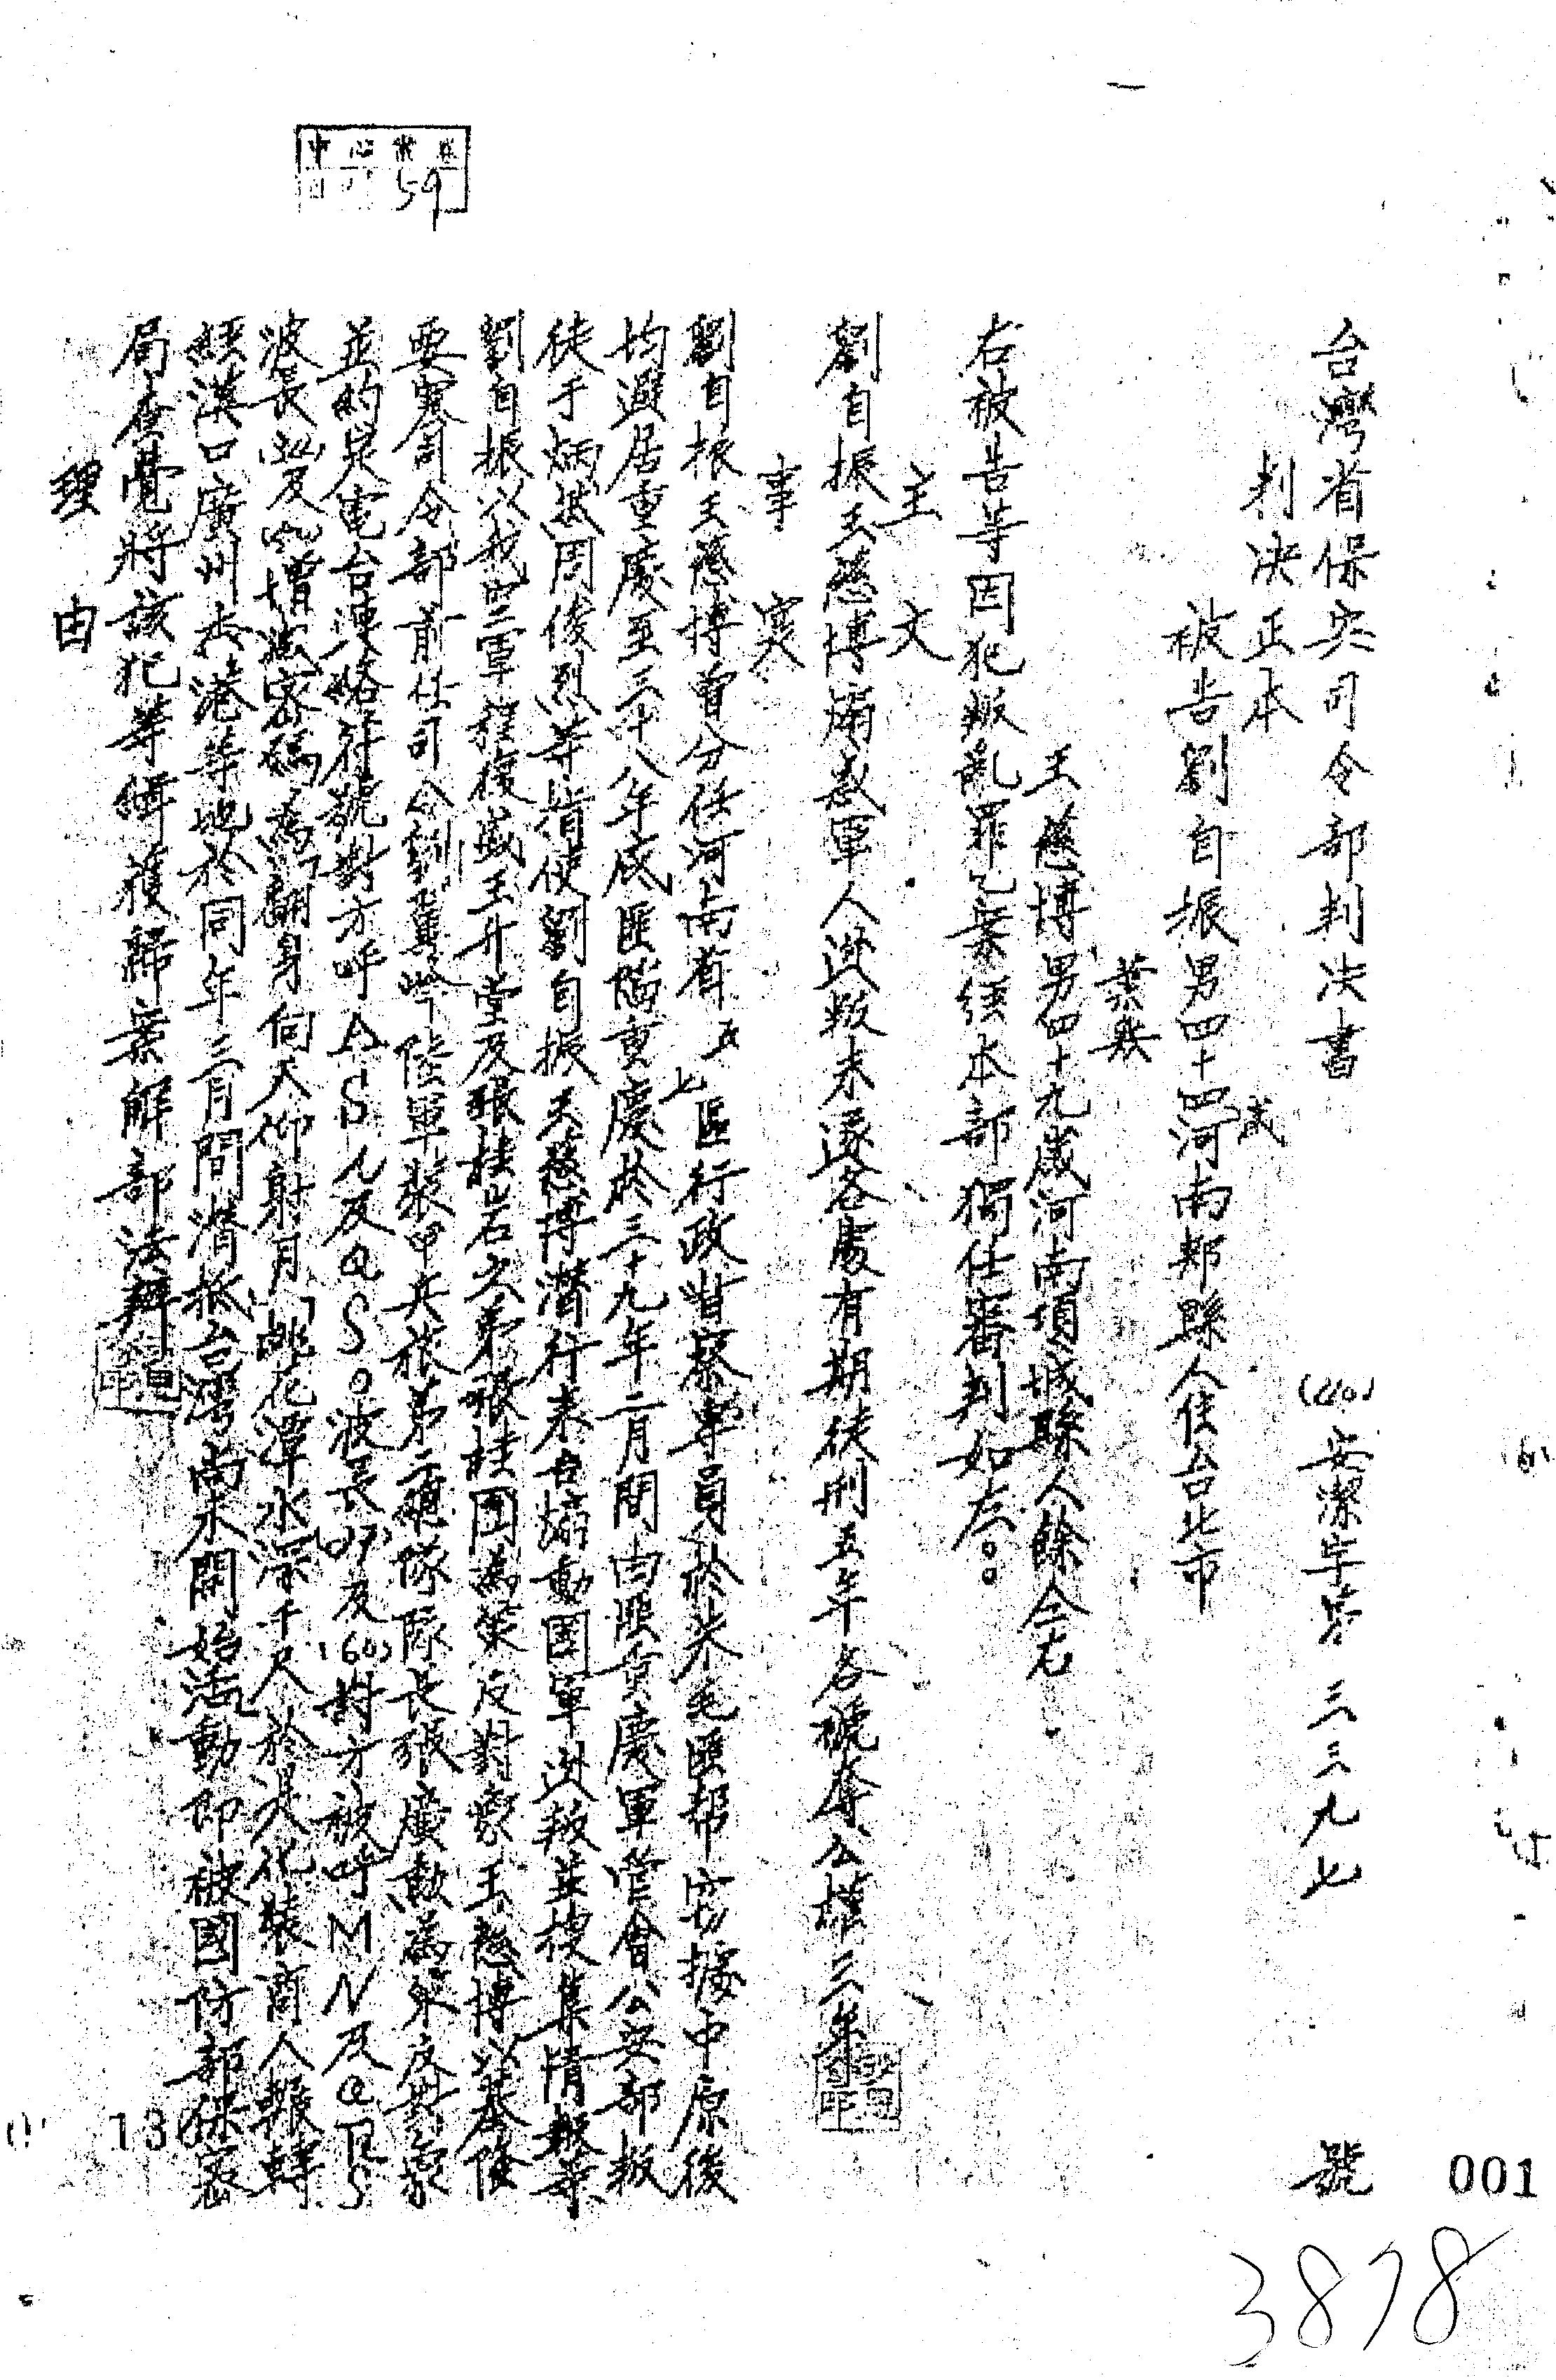 台灣省保安司令部判決書 (40)安潔字第 三三九七 號
判決正本
被告劉自振男四十四歲河南郟縣人住台北市
業農
王慈博男四十九歲河南項城縣人餘仝右
右被告等因犯叛亂罪乙案經本部獨任審判如左。
主文
劉自振王慈博煽惑軍人逃叛未遂各處有期徒刑五年各褫奪公權三年
事實
劉自振王慈博曾分任河南省五七區行政督察專員於朱毛匪幫竊據中原後
均遁居重慶至三十八年底匪陷重慶於三十九年二月間由匪重慶軍管會公安部叛
徒于炳基周俊烈等指使劉自振王慈博潛行來台煽動國軍逃叛並搜集情報等
劉自振以我軍程俊盛王升堂及張桂岩之弟張桂圃為策反對象王慈博以基隆
要塞司令部前任司令劉翼峰陸軍裝甲兵旅第二總隊隊長張廣勳為策反對象
並約定電台連絡符號對方呼ASN及QSO波長及(60)對方被呼MN及QRS
波長及增減密碼為「翻身向天仰射月」「桃花潭水深千尺」於是化裝商人輾轉
經漢口廣州香港等地於同年三月間潛抵台灣尚未開始活動即被國防部保密
局查覺將該犯等緝獲歸案解部法辦
理由
中心
59
136
001
3878